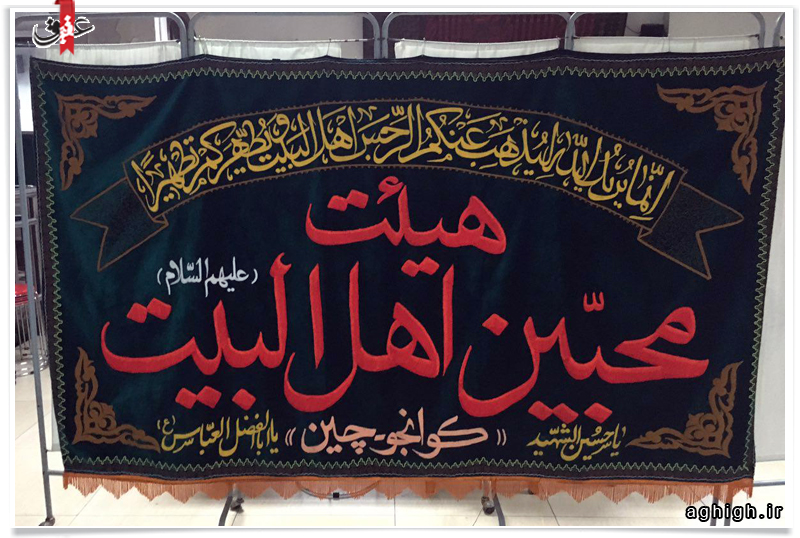 عقیق
إنّما یرید الله لیذهب عنکم الرّجس اهل البیت و یطهّرکم تطهیرا
هیئت
(علیهم السّلام)
محبّین اهل البیت
یا حسین الشهید
«کوانجو-چین»
یا اباالفضل العبّاس (ع)
aghigh.ir